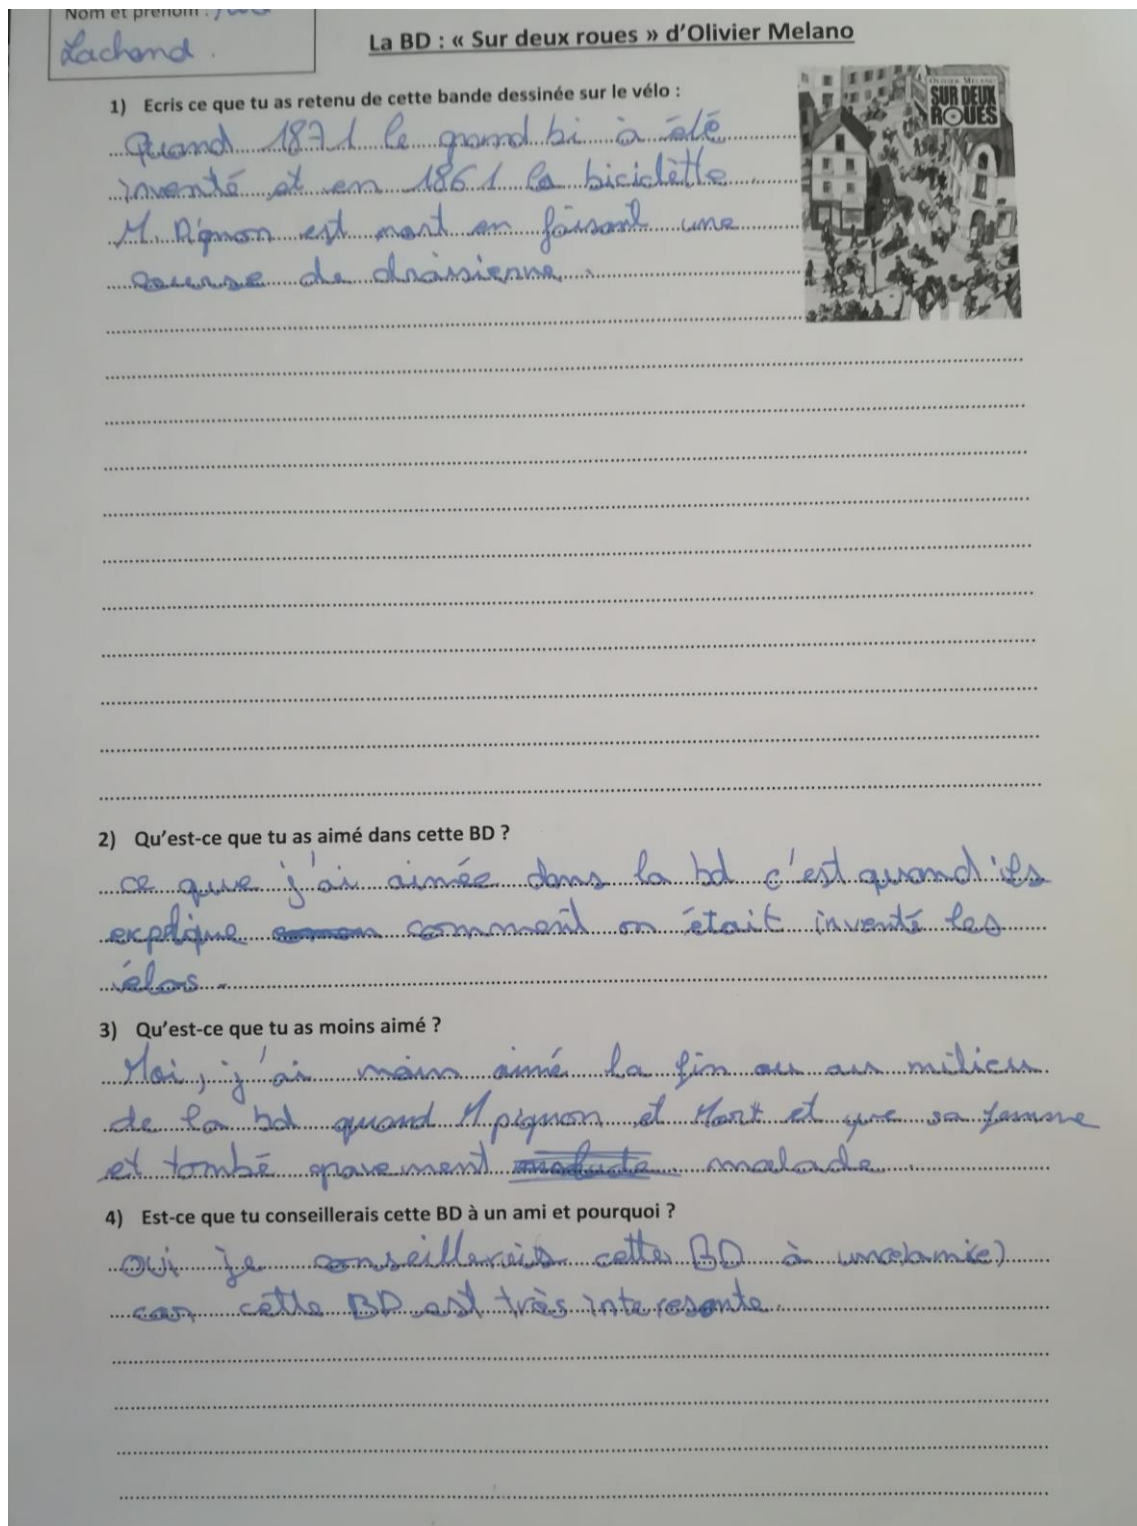 Nom et prénom :
Lachand.
La BD : « Sur deux roues » d'Olivier Melano
OLIVIER MELANO
SUR DEUX
ROUES
1) Ecris ce que tu as retenu de cette bande dessinée sur le vélo :
Quand 1871 le grand bi à été
inventé et en 1861 la biciclètte
M. Pignon est mort en faisant une
course de draisienne.
2) Qu'est-ce que tu as aimé dans cette BD ?
ce que j'ai aimée dans la bd c'est quand ils
explique comment on était inventé les
vélos.
3) Qu'est-ce que tu as moins aimé ?
Moi, j'ai moin aimé la fin ou au milieu
de la bd quand M pignon et Mort et que sa femme
et tombé gravement malade.
4) Est-ce que tu conseillerais cette BD à un ami et pourquoi ?
oui je conseillerais cette BD à un(e)ami(e)
car cette BD est très interesante.